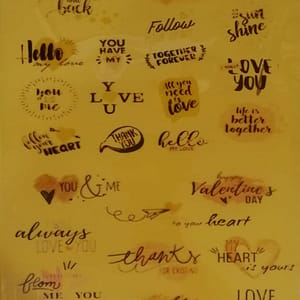 back
Follow
sun
shine
Hello
my love
YOU
HAVE
MY
TOGETHER
FOREVER
LOVE
YOU
you
me
LOVE
YOU
All you
need
is
love
life is
better
together
follow
your
HEART
THANK
YOU
hello
MY LOVE
YOU & ME
happy
Valentine's
DAY
to your heart
always
LOVE YOU
thanks
FOR EXISTING
MY
HEART
is yours
from
ME YOU
LOVE